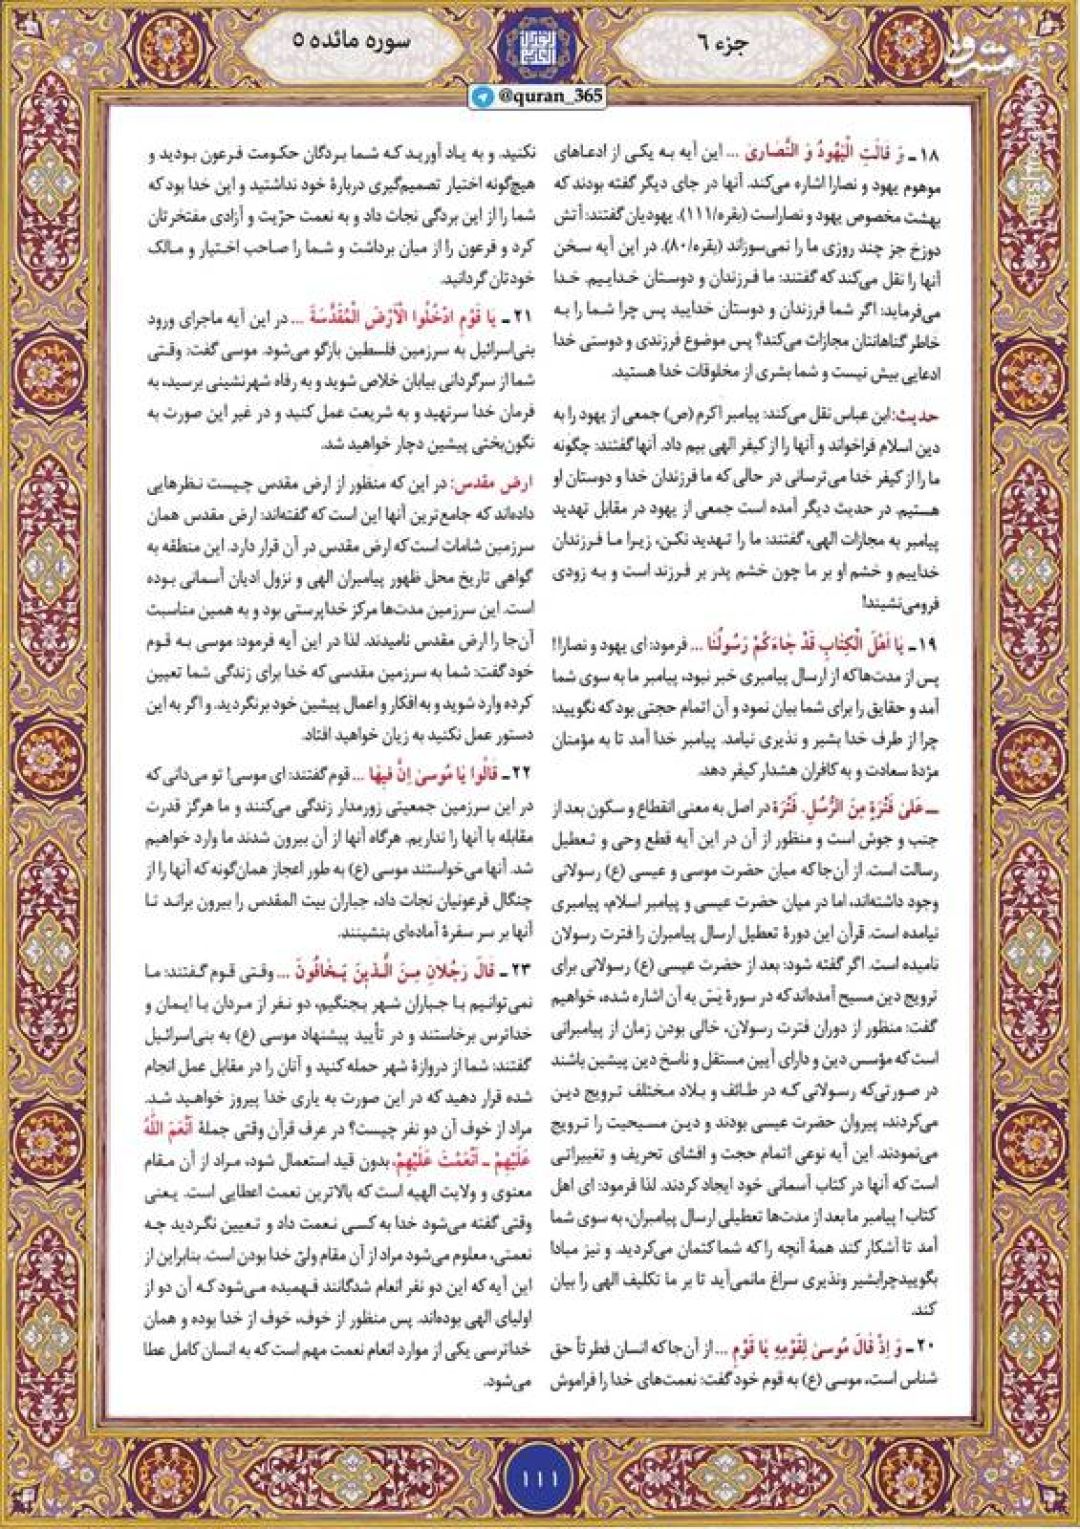 جزء ۶
سوره مائده ۵
@quran_365
۱۸ـ وَ قالَتِ الْیَهُودُ وَ النَّصاریٰ ... این آیه به یکی از ادعاهای
موهوم یهود و نصارا اشاره می‌کند. آنها در جای دیگر گفته بودند که
بهشت مخصوص یهود و نصاراست (بقره/۱۱۱). یهودیان گفتند: آتش
دوزخ جز چند روزی ما را نمی‌سوزاند (بقره/۸۰). در این آیه سخن
آنها را نقل می‌کند که گفتند: ما فرزندان و دوستان خداییم. خدا
می‌فرماید: اگر شما فرزندان و دوستان خدایید پس چرا شما را به
خاطر گناهانتان مجازات می‌کند؟ پس موضوع فرزندی و دوستی خدا
ادعایی بیش نیست و شما بشری از مخلوقات خدا هستید.
حدیث: ابن عباس نقل می‌کند: پیامبر اکرم (ص) جمعی از یهود را به
دین اسلام فراخواند و آنها را از کیفر الهی بیم داد. آنها گفتند: چگونه
ما را از کیفر خدا می‌ترسانی در حالی که ما فرزندان خدا و دوستان او
هستیم. در حدیث دیگر آمده است جمعی از یهود در مقابل تهدید
پیامبر به مجازات الهی، گفتند: ما را تهدید نکن، زیرا ما فرزندان
خداییم و خشم او بر ما چون خشم پدر بر فرزند است و به زودی
فرومی‌نشیند!
۱۹ـ یا اَهْلَ الْکِتابِ قَدْ جاءَکُمْ رَسُولُنا ... فرمود: ای یهود و نصارا!
پس از مدت‌ها که از ارسال پیامبری خبر نبود، پیامبر ما به سوی شما
آمد و حقایق را برای شما بیان نمود و آن اتمام حجتی بود که نگویید:
چرا از طرف خدا بشیر و نذیری نیامد. پیامبر خدا آمد تا به مؤمنان
مژدهٔ سعادت و به کافران هشدار کیفر دهد.
ـ عَلیٰ فَتْرَةٍ مِنَ الرُّسُلِ. فَتْرَة در اصل به معنی انقطاع و سکون بعد از
جنب و جوش است و منظور از آن در این آیه قطع وحی و تعطیل
رسالت است. از آن‌جا که میان حضرت موسی و عیسی (ع) رسولانی
وجود داشته‌اند، اما در میان حضرت عیسی و پیامبر اسلام، پیامبری
نیامده است. قرآن این دورهٔ تعطیل ارسال پیامبران را فترت رسولان
نامیده است. اگر گفته شود: بعد از حضرت عیسی (ع) رسولانی برای
ترویج دین مسیح آمده‌اند که در سورهٔ یٰسٓ به آن اشاره شده، خواهیم
گفت: منظور از دوران فترت رسولان، خالی بودن زمان از پیامبرانی
است که مؤسس دین و دارای آیین مستقل و ناسخ دین پیشین باشند
در صورتی‌که رسولانی که در طائف و بلاد مختلف ترویج دین
می‌کردند، پیروان حضرت عیسی بودند و دین مسیحیت را ترویج
می‌نمودند. این آیه نوعی اتمام حجت و افشای تحریف و تغییراتی
است که آنها در کتاب آسمانی خود ایجاد کردند. لذا فرمود: ای اهل
کتاب! پیامبر ما بعد از مدت‌ها تعطیلی ارسال پیامبران، به سوی شما
آمد تا آشکار کند همهٔ آنچه را که شما کتمان می‌کردید. و نیز مبادا
بگویید چرا بشیر و نذیری سراغ ما نمی‌آید تا بر ما تکلیف الهی را بیان
کند.
۲۰ـ وَ اِذْ قالَ مُوسیٰ لِقَوْمِهِ یا قَوْمِ ... از آن‌جا که انسان فطرتاً حق
شناس است، موسی (ع) به قوم خود گفت: نعمت‌های خدا را فراموش
نکنید. و به یاد آورید که شما بردگان حکومت فرعون بودید و
هیچ‌گونه اختیار تصمیم‌گیری دربارهٔ خود نداشتید و این خدا بود که
شما را از این بردگی نجات داد و به نعمت حرّیت و آزادی مفتخرتان
کرد و فرعون را از میان برداشت و شما را صاحب اختیار و مالک
خودتان گردانید.
۲۱ـ یا قَوْمِ ادْخُلُوا الْاَرْضَ الْمُقَدَّسَةَ ... در این آیه ماجرای ورود
بنی‌اسرائیل به سرزمین فلسطین بازگو می‌شود. موسی گفت: وقتی
شما از سرگردانی بیابان خلاص شوید و به رفاه شهرنشینی برسید، به
فرمان خدا سر نهید و به شریعت عمل کنید و در غیر این صورت به
نگون‌بختی پیشین دچار خواهید شد.
ارض مقدس: در این که منظور از ارض مقدس چیست نظرهایی
داده‌اند که جامع‌ترین آنها این است که گفته‌اند: ارض مقدس همان
سرزمین شامات است که ارض مقدس در آن قرار دارد. این منطقه به
گواهی تاریخ محل ظهور پیامبران الهی و نزول ادیان آسمانی بوده
است. این سرزمین مدت‌ها مرکز خداپرستی بود و به همین مناسبت
آن‌جا را ارض مقدس نامیدند. لذا در این آیه فرمود: موسی به قوم
خود گفت: شما به سرزمین مقدسی که خدا برای زندگی شما تعیین
کرده وارد شوید و به افکار و اعمال پیشین خود برنگردید. و اگر به این
دستور عمل نکنید به زیان خواهید افتاد.
۲۲ـ قالُوا یا مُوسیٰ اِنَّ فیها ... قوم گفتند: ای موسی! تو می‌دانی که
در این سرزمین جمعیتی زورمدار زندگی می‌کنند و ما هرگز قدرت
مقابله با آنها را نداریم. هرگاه آنها از آن بیرون شدند ما وارد خواهیم
شد. آنها می‌خواستند موسی (ع) به طور اعجاز همان‌گونه که آنها را از
چنگال فرعونیان نجات داد، جباران بیت المقدس را بیرون براند تا
آنها بر سر سفرهٔ آماده‌ای بنشینند.
۲۳ـ قالَ رَجُلانِ مِنَ الَّذینَ یَخافُونَ ... وقتی قوم گفتند: ما
نمی‌توانیم با جباران شهر بجنگیم، دو نفر از مردان با ایمان و
خداترس برخاستند و در تأیید پیشنهاد موسی (ع) به بنی‌اسرائیل
گفتند: شما از دروازهٔ شهر حمله کنید و آنان را در مقابل عمل انجام
شده قرار دهید که در این صورت به یاری خدا پیروز خواهید شد.
مراد از خوف آن دو نفر چیست؟ در عرف قرآن وقتی جملهٔ اَنْعَمَ اللّٰهُ
عَلَیْهِمْ ـ اَنْعَمْتَ عَلَیْهِمْ، بدون قید استعمال شود، مراد از آن مقام
معنوی و ولایت الهیه است که بالاترین نعمت اعطایی است. یعنی
وقتی گفته می‌شود خدا به کسی نعمت داد و تعیین نگردید چه
نعمتی، معلوم می‌شود مراد از آن مقام ولیّ خدا بودن است. بنابراین از
این آیه که این دو نفر انعام شدگانند فهمیده می‌شود که آن دو از
اولیای الهی بوده‌اند. پس منظور از خوف، خوف از خدا بوده و همان
خداترسی یکی از موارد انعام نعمت مهم است که به انسان کامل عطا
می‌شود.
۱۱۱